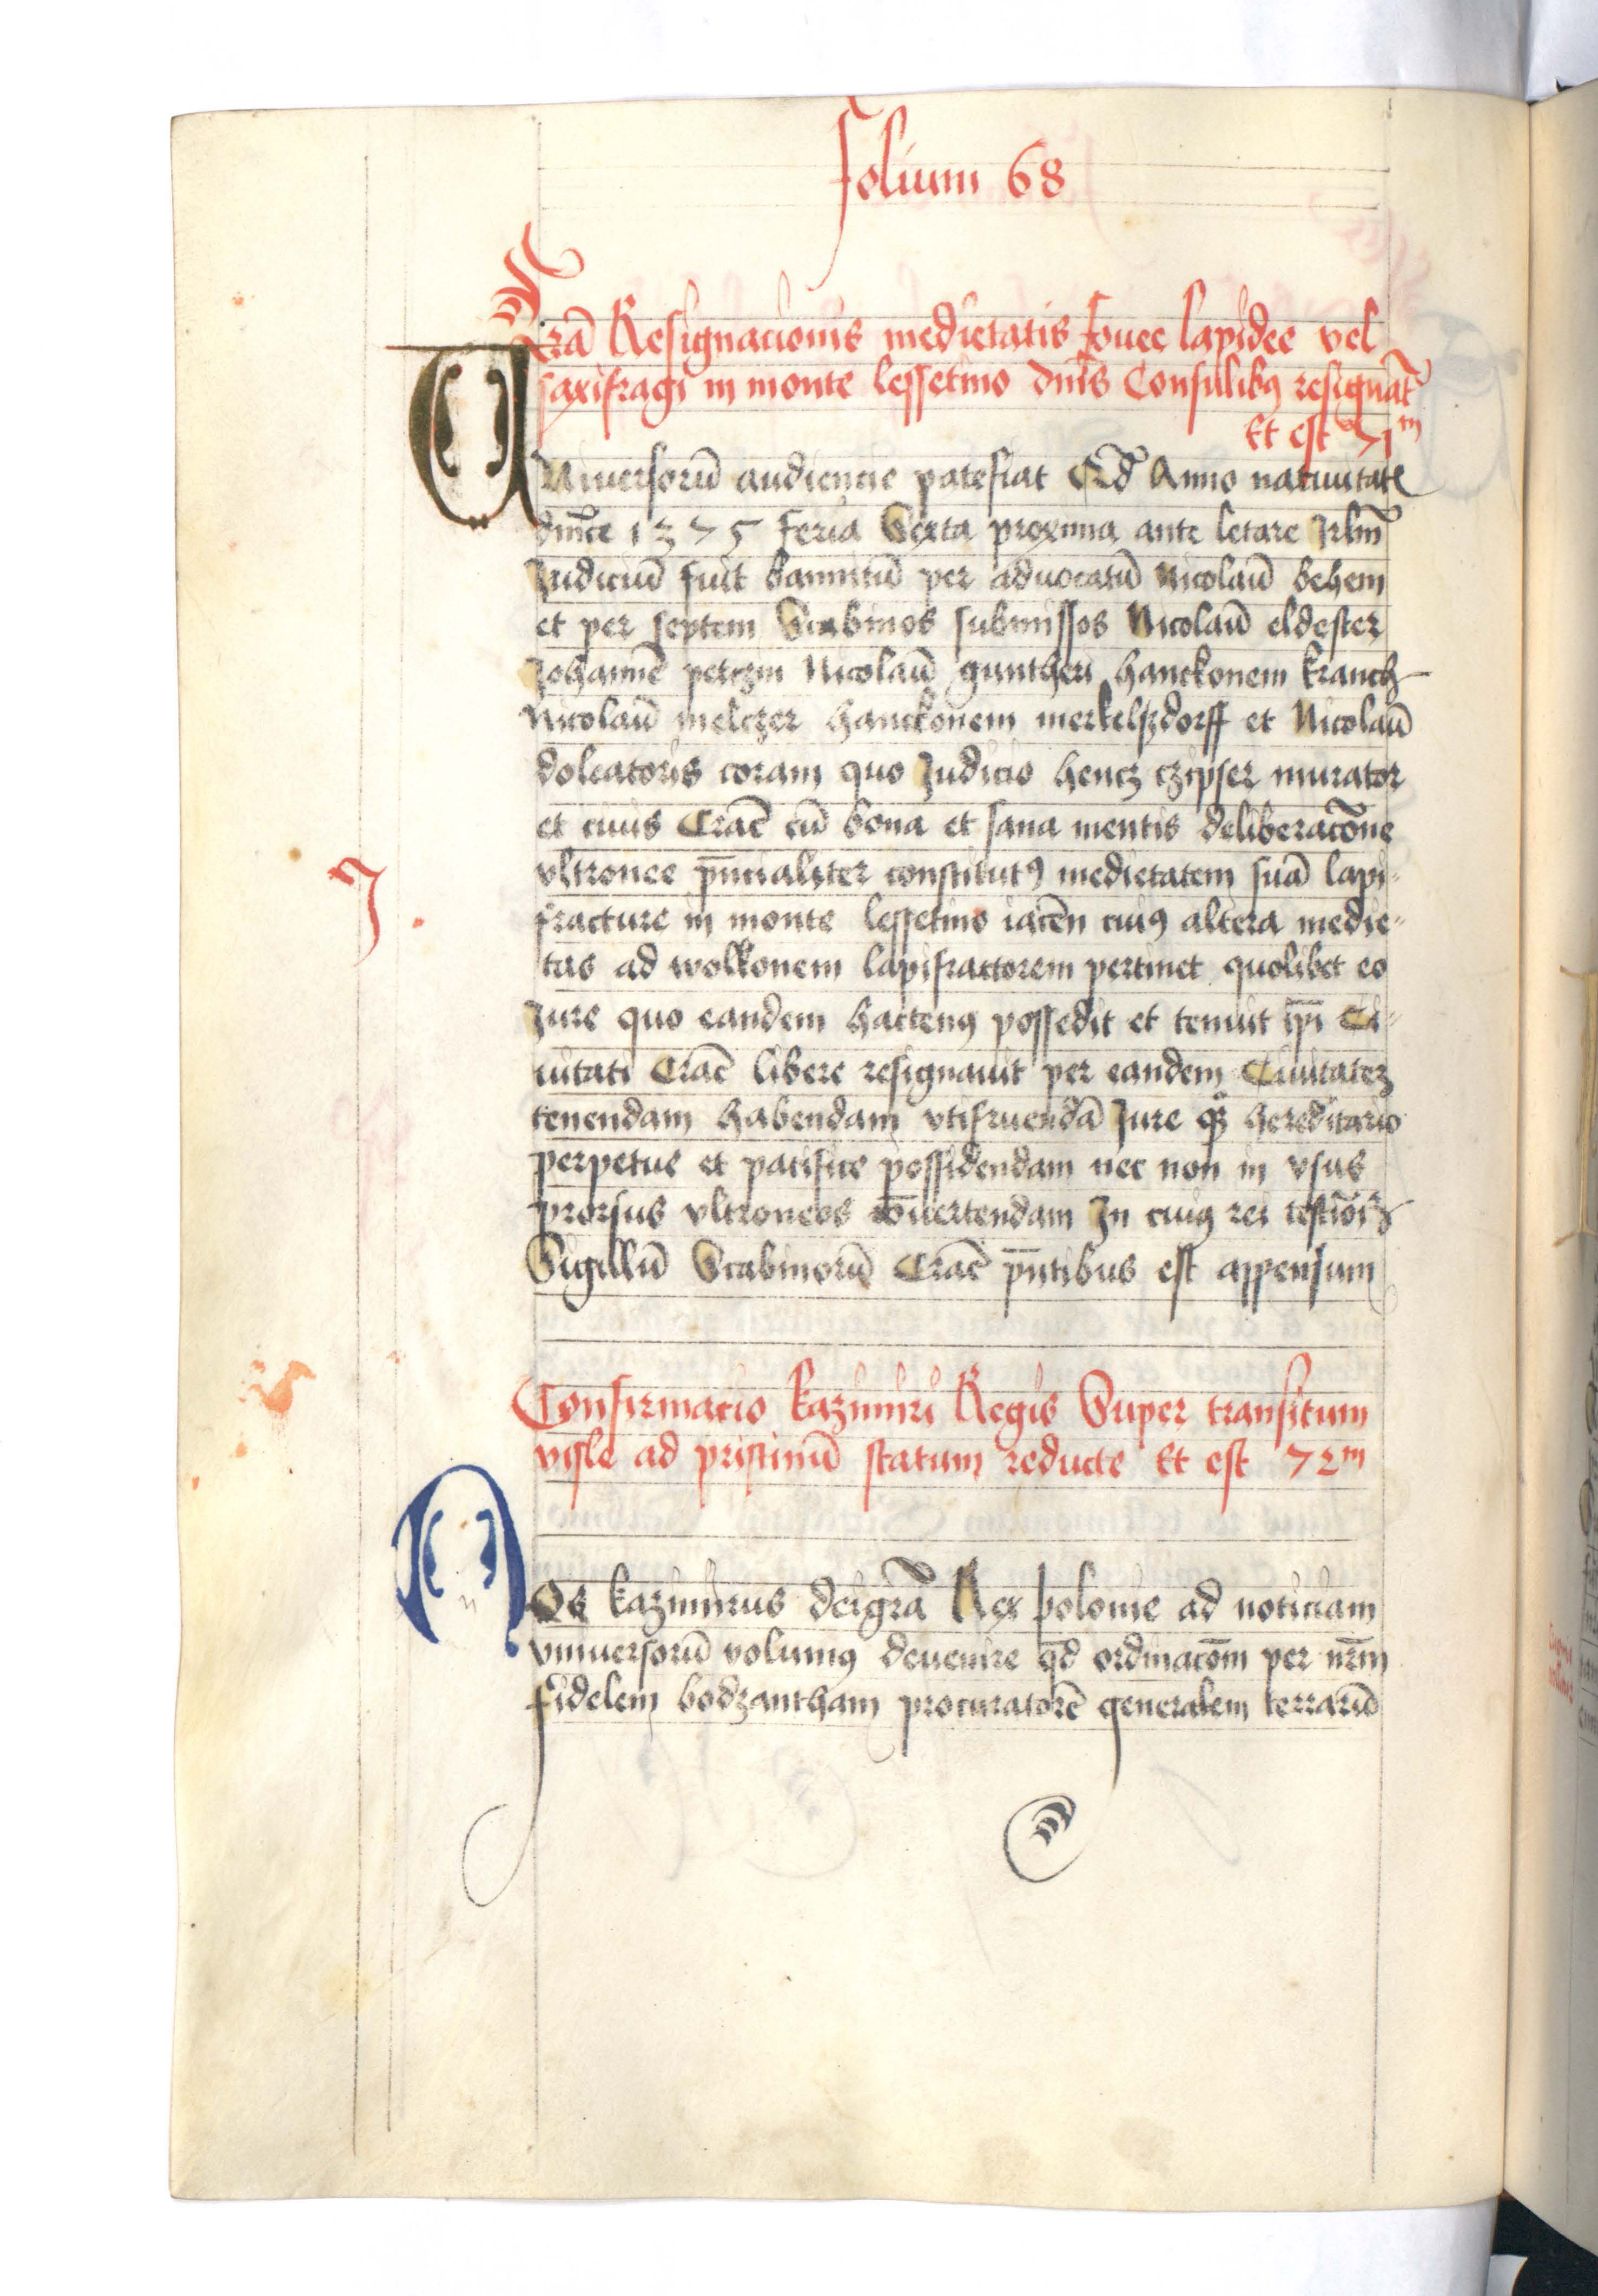 folium 68
Lr̃ã Resignacionis medietatis fouee lapidee vel
saxifragi in monte lessetino dñis Consulibꝰ resignãt
Et est 71ᵐ
UNiuersorũ audiencie patefiat Qd̃ Anno natiuitatis
dñice 1375 feria Sexta proxima ante letare Jrl̃m
Judiciũ fuit bannitũ per aduocatũ Nicolaũ behem
et per septem Scabinos submissos Nicolaũ eldester
Johannẽ petczin Nicolaũ guntheri hanckonem kranch
Nicolaũ melczer hanckonem merkelsdorff et Nicolaũ
doleatoris coram quo Judicio hencz czipser murator
et ciuis Crac̃ cũ bona et sana mentis deliberacõne
vltronee p̃ncialiter constitutꝰ medietatem suã lapi-
J.
fracture in monte lessetino iacẽn cuiꝰ altera medie-
tas ad wolkonem lapifractorem pertinet quolibet eo
Jure quo eandem hactenꝰ possedit et tenuit ip̃i Ci-
uitati Crac̃ libere resignauit per eandem Ciuitatez
tenendam habendam vtifruendã Jure qꝫ hereditario
perpetue et pacifice possidendam nec non in vsus
prorsus vltroneos cõuertendam In cuiꝰ rei testĩoiũ
Sigillũ Scabinorũ Crac̃ p̃ntibus est appensum
Confirmacio kazimiri Regis Super transitum
visle ad pristinũ statum reducte Et est 72ᵐ
NOs kazimirus dei gr̃a Rex polonie ad noticiam
vniuersorũ volumꝰ deuenire qd̃ ordinacõm per nr̃m
fidelem bodzantham procuratorẽ generalem terrarũ